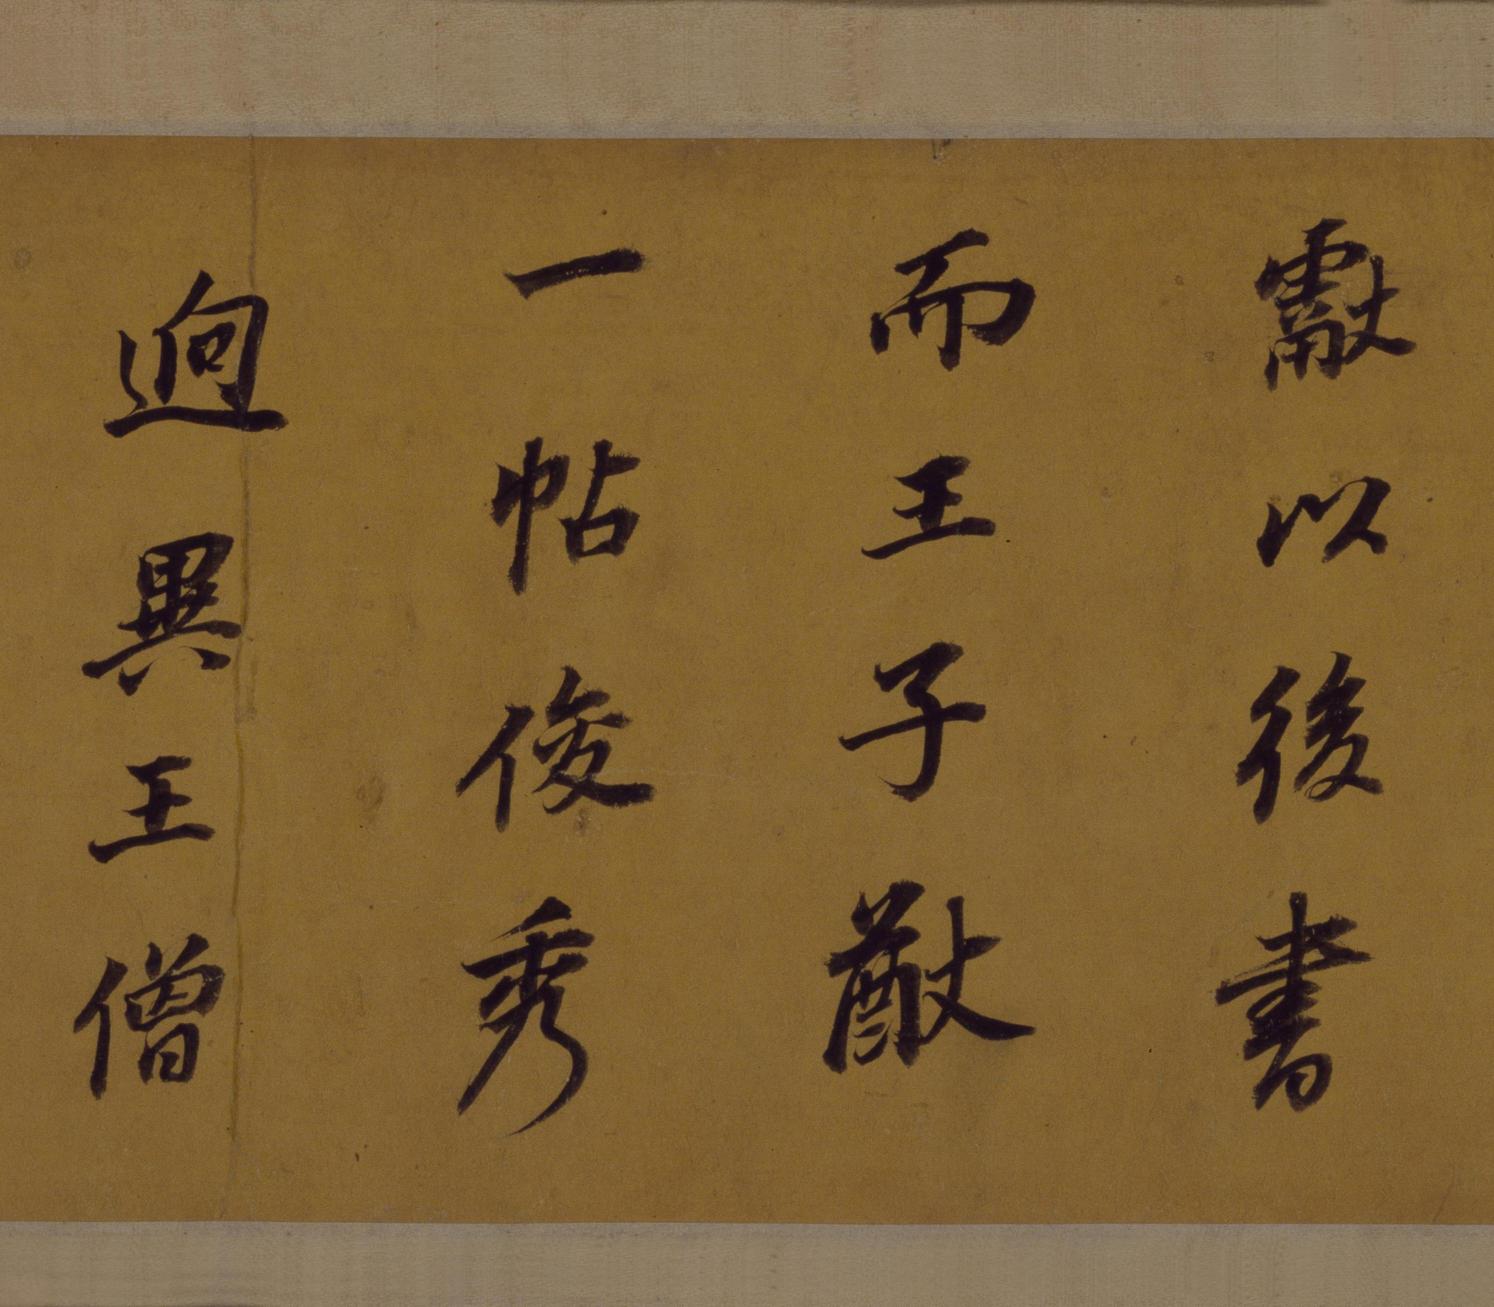 獻以後書
而王子猷
一帖俊秀
逈異王僧